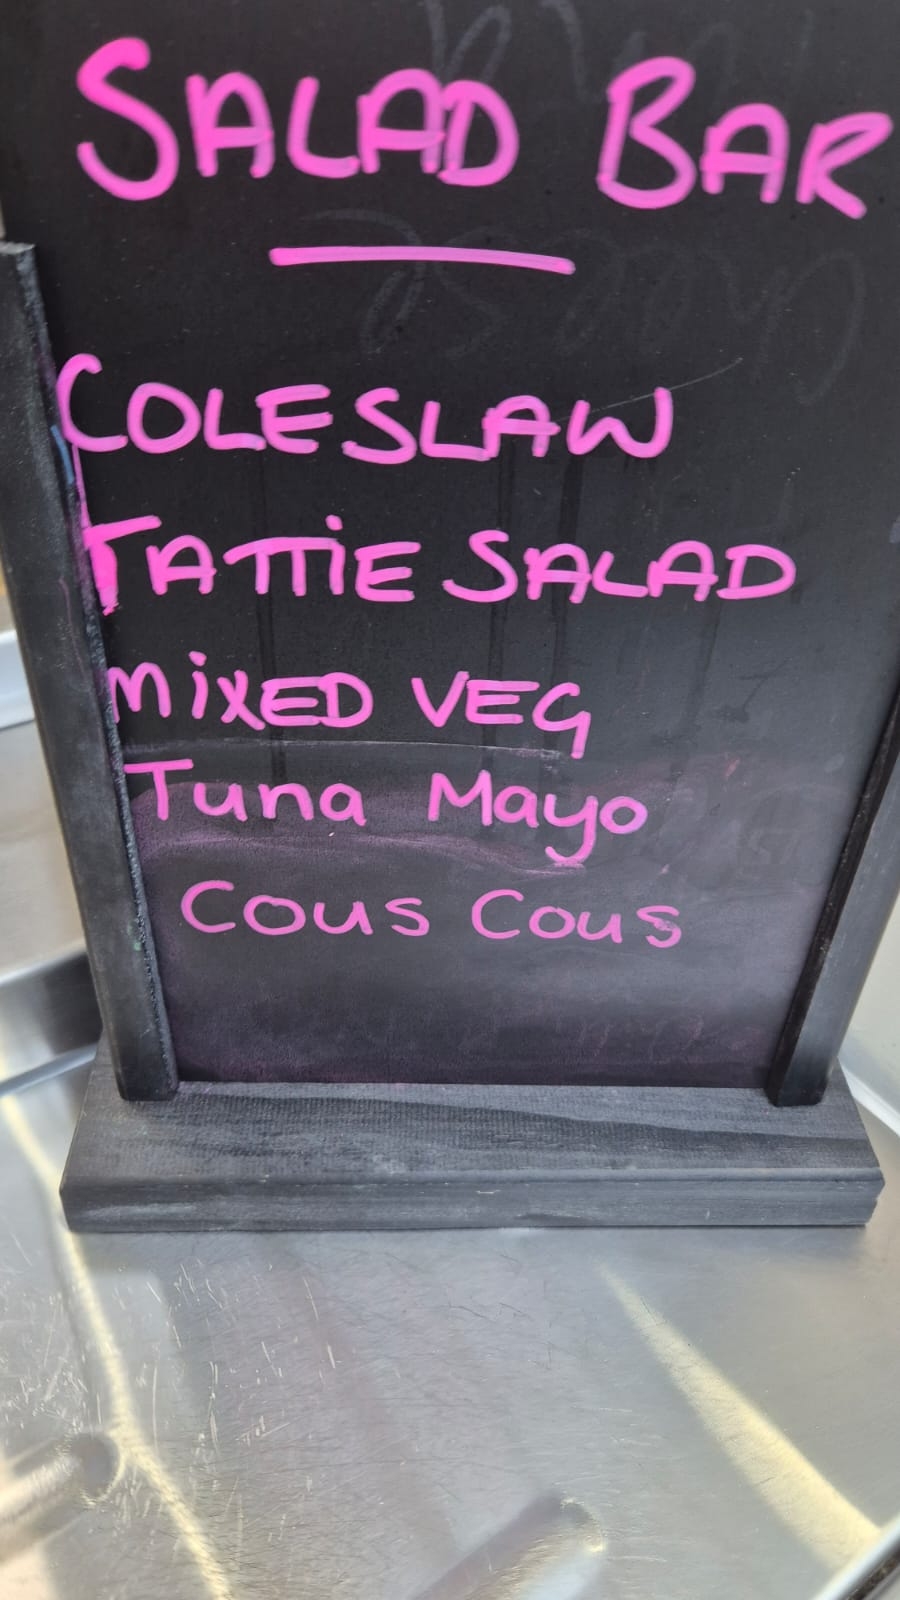 SALAD BAR
COLESLAW
TATTIE SALAD
MIXED VEG
Tuna Mayo
Cous Cous